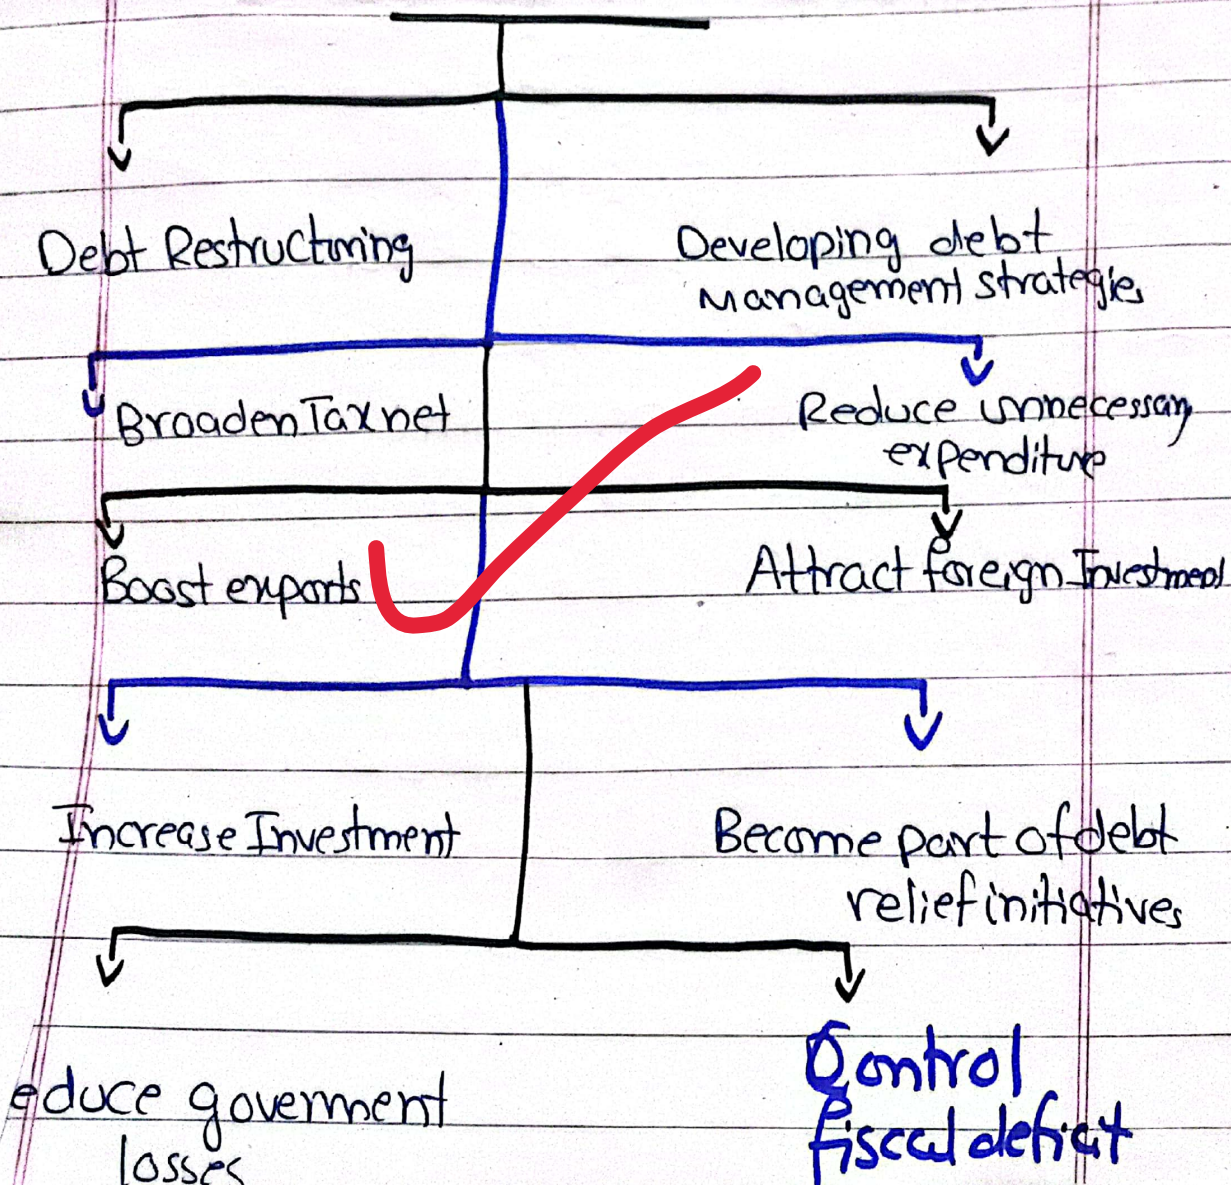 Debt Restructuring
Developing debt
Management strategies
Broaden Tax net
Reduce unnecessary
expenditure
Boost exports
Attract foreign Investment
Increase Investment
Become part of debt
relief initiatives
educe government
losses
Control
fiscal deficit